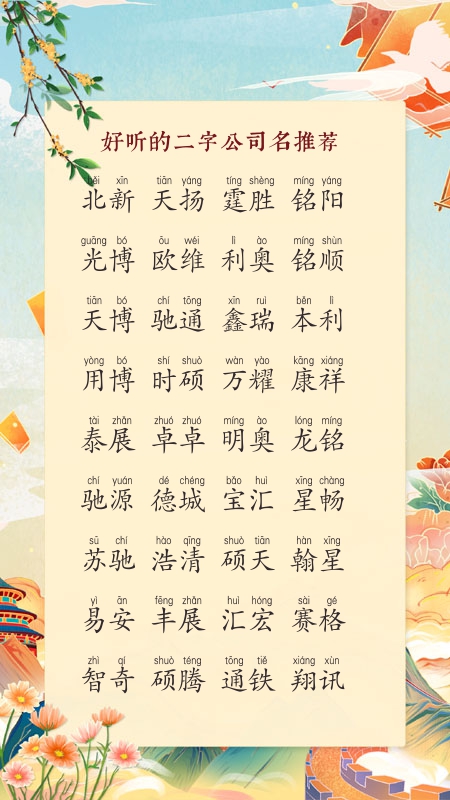 好听的二字公司名推荐
běi xīn tiān yáng tíng shèng míng yáng
北新 天扬 霆胜 铭阳
guāng bó ōu wéi lì ào míng shùn
光博 欧维 利奥 铭顺
tiān bó chí tōng xīn ruì běn lì
天博 驰通 鑫瑞 本利
yòng bó shí shuò wàn yào kāng xiáng
用博 时硕 万耀 康祥
tài zhǎn zhuó zhuó míng ào lóng míng
泰展 卓卓 明奥 龙铭
chí yuán dé chéng bǎo huì xīng chàng
驰源 德城 宝汇 星畅
sū chí hào qīng shuò tiān hàn xīng
苏驰 浩清 硕天 翰星
yì ān fēng zhǎn huì hóng sài gé
易安 丰展 汇宏 赛格
zhì qí shuò téng tōng tiě xiáng xùn
智奇 硕腾 通铁 翔讯